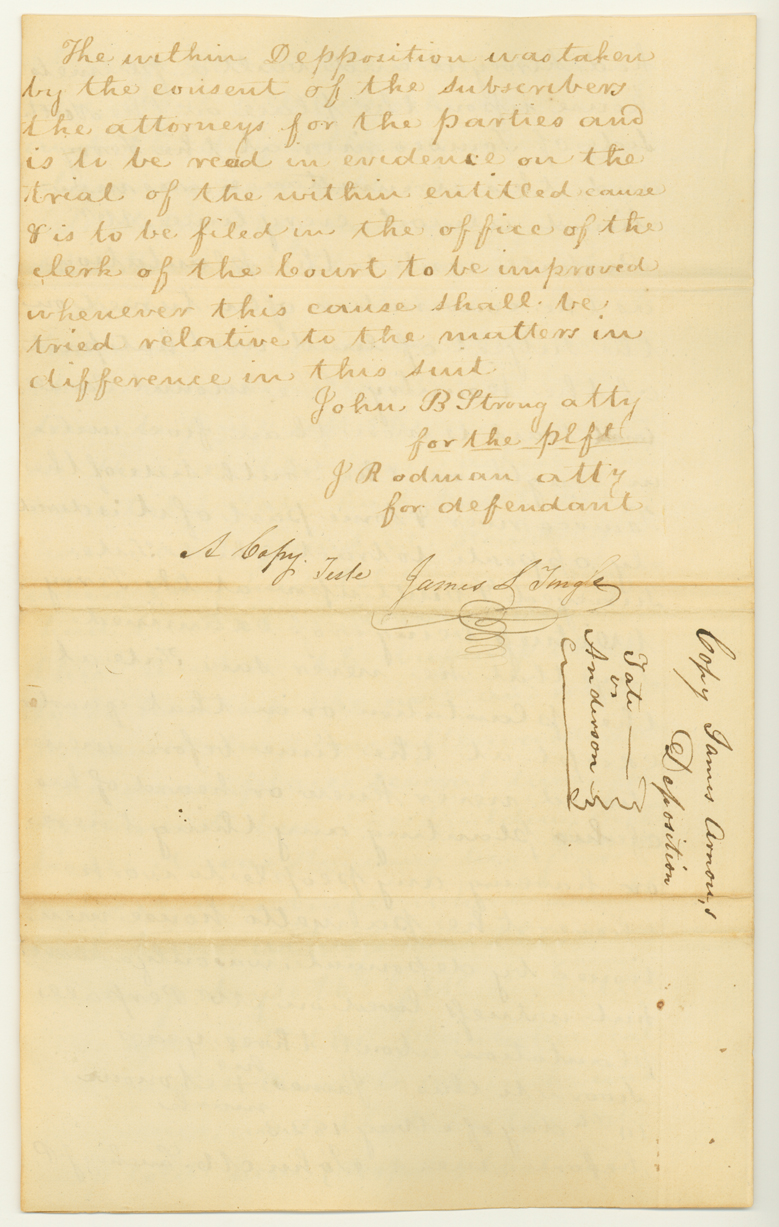 The within Depposition was taken
by the consent of the subscribers
the attorneys for the parties and
is to be read in evidence on the
trial of the within entitled cause
& is to be filed in the office of the
clerk of the Court to be improved
whenever this cause shall be
tried relative to the matters in
difference in this suit
John B Strong atty
for the plft
J Rodman atty
for defendant
A Copy. Teste James S Tingle
Copy James Arnou,s
Deposition
Tate
vs
Anderson